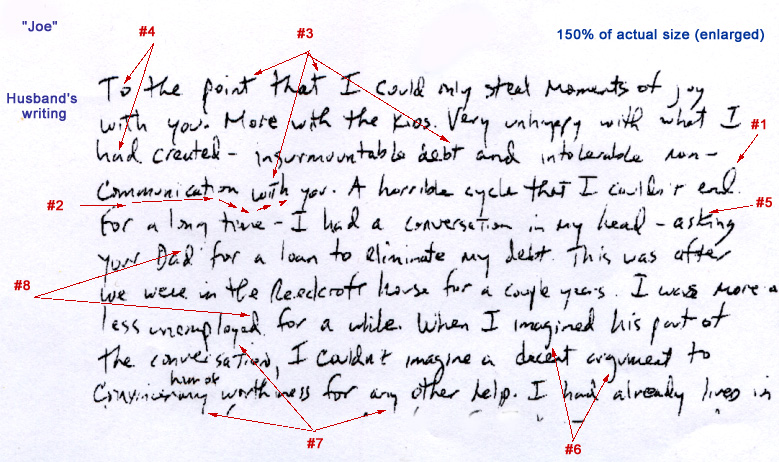 "Joe"
#4
#3
150% of actual size (enlarged)
Husband's
writing
To the point that I could only steal moments of joy
with you. More with the kids. Very unhappy with what I
#1
had created - insurmountable debt and intolerable non-
communication with you. A horrible cycle that I couldn't end
#2
#5
for a long time - I had a conversation in my head - asking
your Dad for a loan to eliminate my debt. This was after
#8
we were in the Reedcroft house for a couple years. I was more a
less unemployed for a while. When I imagined his part of
the conversation, I couldn't imagine a decent argument to
him of
convincing worthiness for any other help. I had already lived in
#7
#6